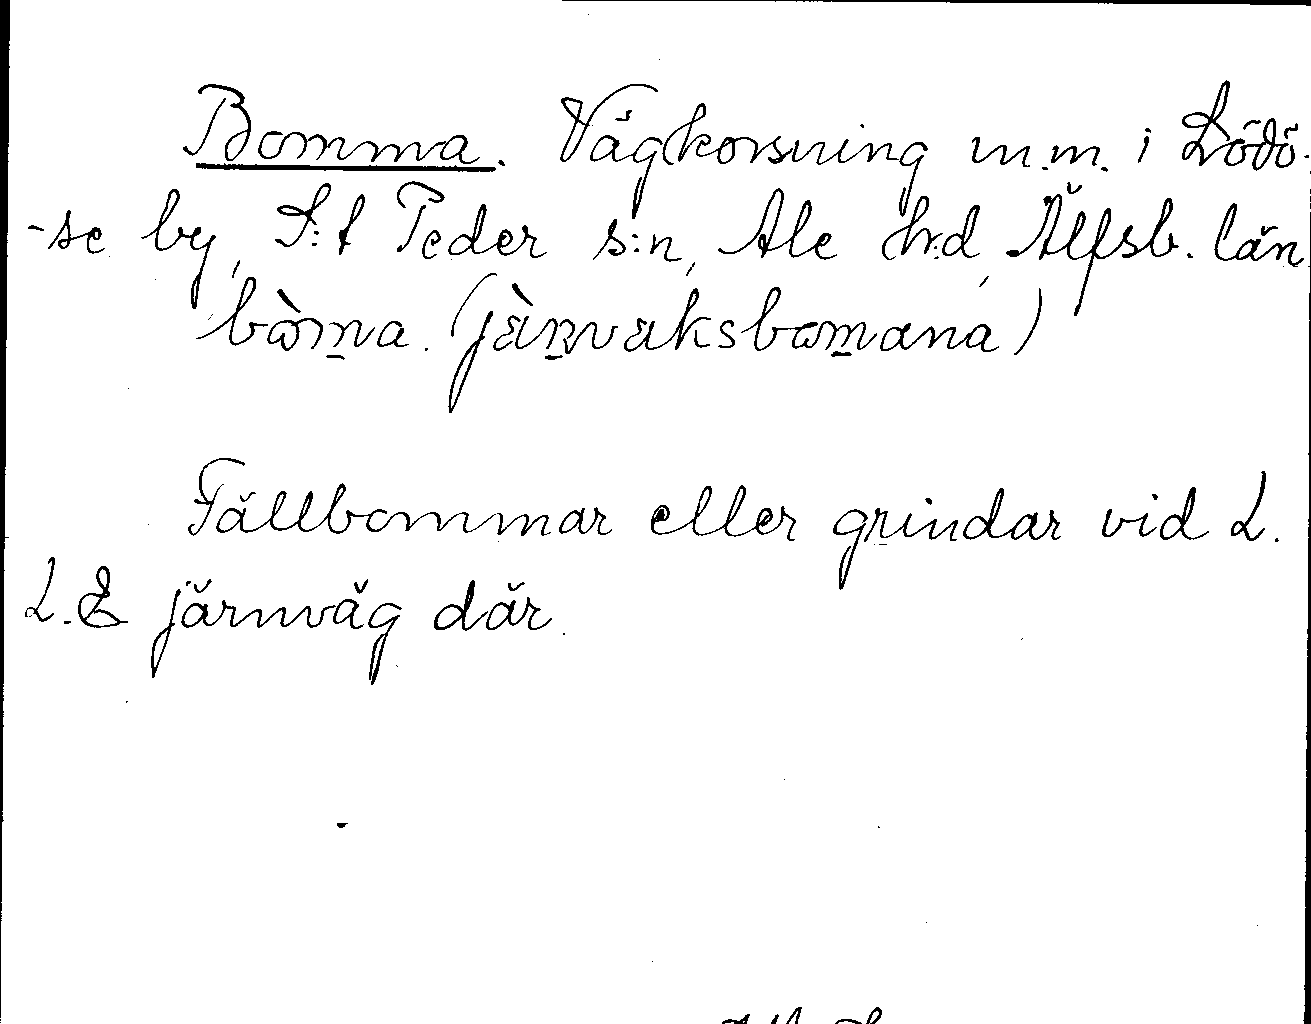 Bomma. Vägkorsning m.m. i Lödö-
-se by, S:t Peder s:n, Ale h:d, Älfsb. län
bòm̲a. (jàn̲vaksbom̲ana)
Fällbommar eller grindar vid L.
L. & järnväg där.